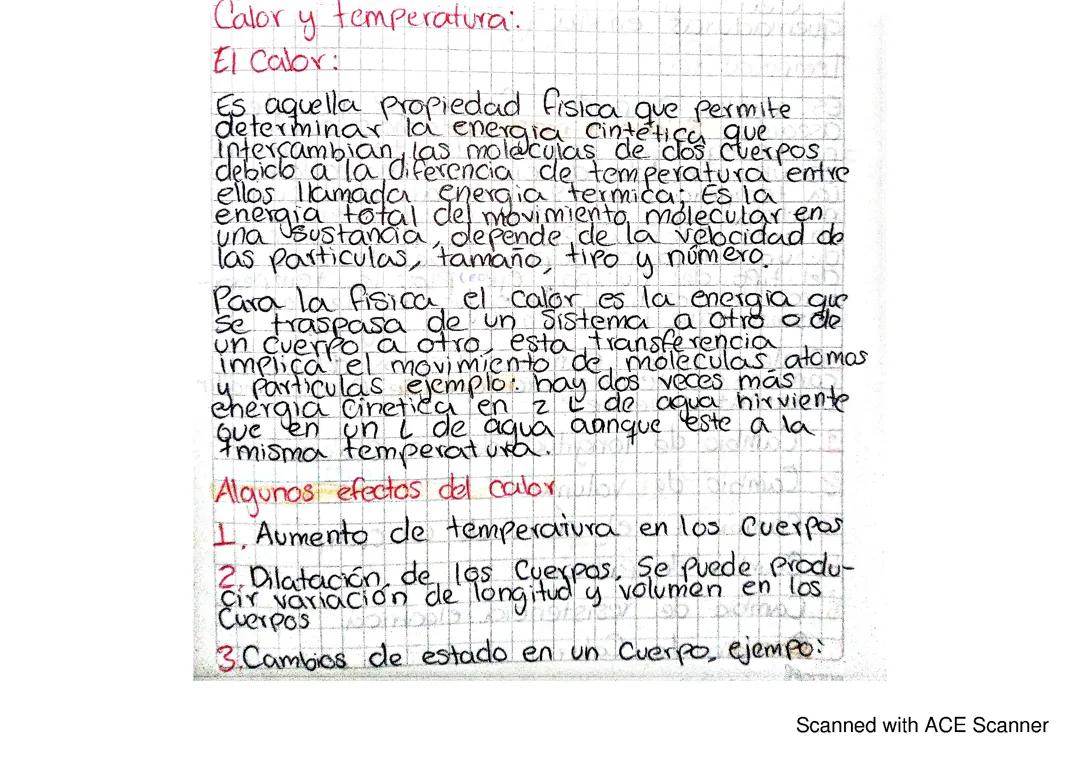 Calor y temperatura:
El Calor:
Es aquella propiedad fisica que permite
determinar la energia cintética que
intercambian las moleculas de dos cuerpos
debido a la diferencia de temperatura entre
ellos llamada energia termica; Es la
energia total del movimiento molecular en
una sustancia, depende de la velocidad de
las particulas, tamaño, tipo y número.
Para la fisica el calor es la energia que
se traspasa de un sistema a otro o de
un cuerpo a otro, esta transferencia
implica el movimiento de moleculas, atomos
y particulas ejemplo: hay dos veces más
energia cinetica en 2 L de agua hirviente
que en un L de agua aonque este a la
misma temperatura.
Algunos efectos del calor
1. Aumento de temperatura en los cuerpos
2. Dilatación de los cuerpos. Se puede produ-
cir variación de longitud y volumen en los
cuerpos
3. Cambios de estado en un cuerpo, ejempo:
Scanned with ACE Scanner